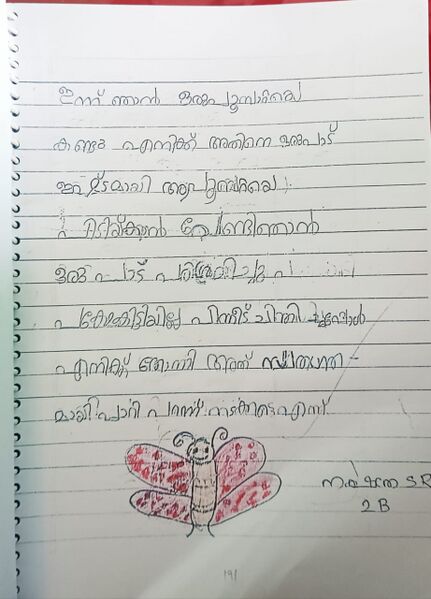 ഇന്ന് ഞാൻ ഒരു പൂമ്പാറ്റയെ
കണ്ടു എനിക്ക് അതിനെ ഒരുപാട്
ഇഷ്ടമായി ആ പൂമ്പാറ്റയെ
പിടിയ്ക്കാൻ വേണ്ടി ഞാൻ
ഒരു പാട് പരിശ്രമിച്ചു
പക്ഷേ കിട്ടിയില്ല പിന്നീട് ചിന്തിച്ചപ്പോൾ
എനിക്ക് തോന്നി അത് സ്വതന്ത്ര-
മായി പാറി പറന്ന് നടക്കട്ടെ എന്ന്
S R
2 B
191